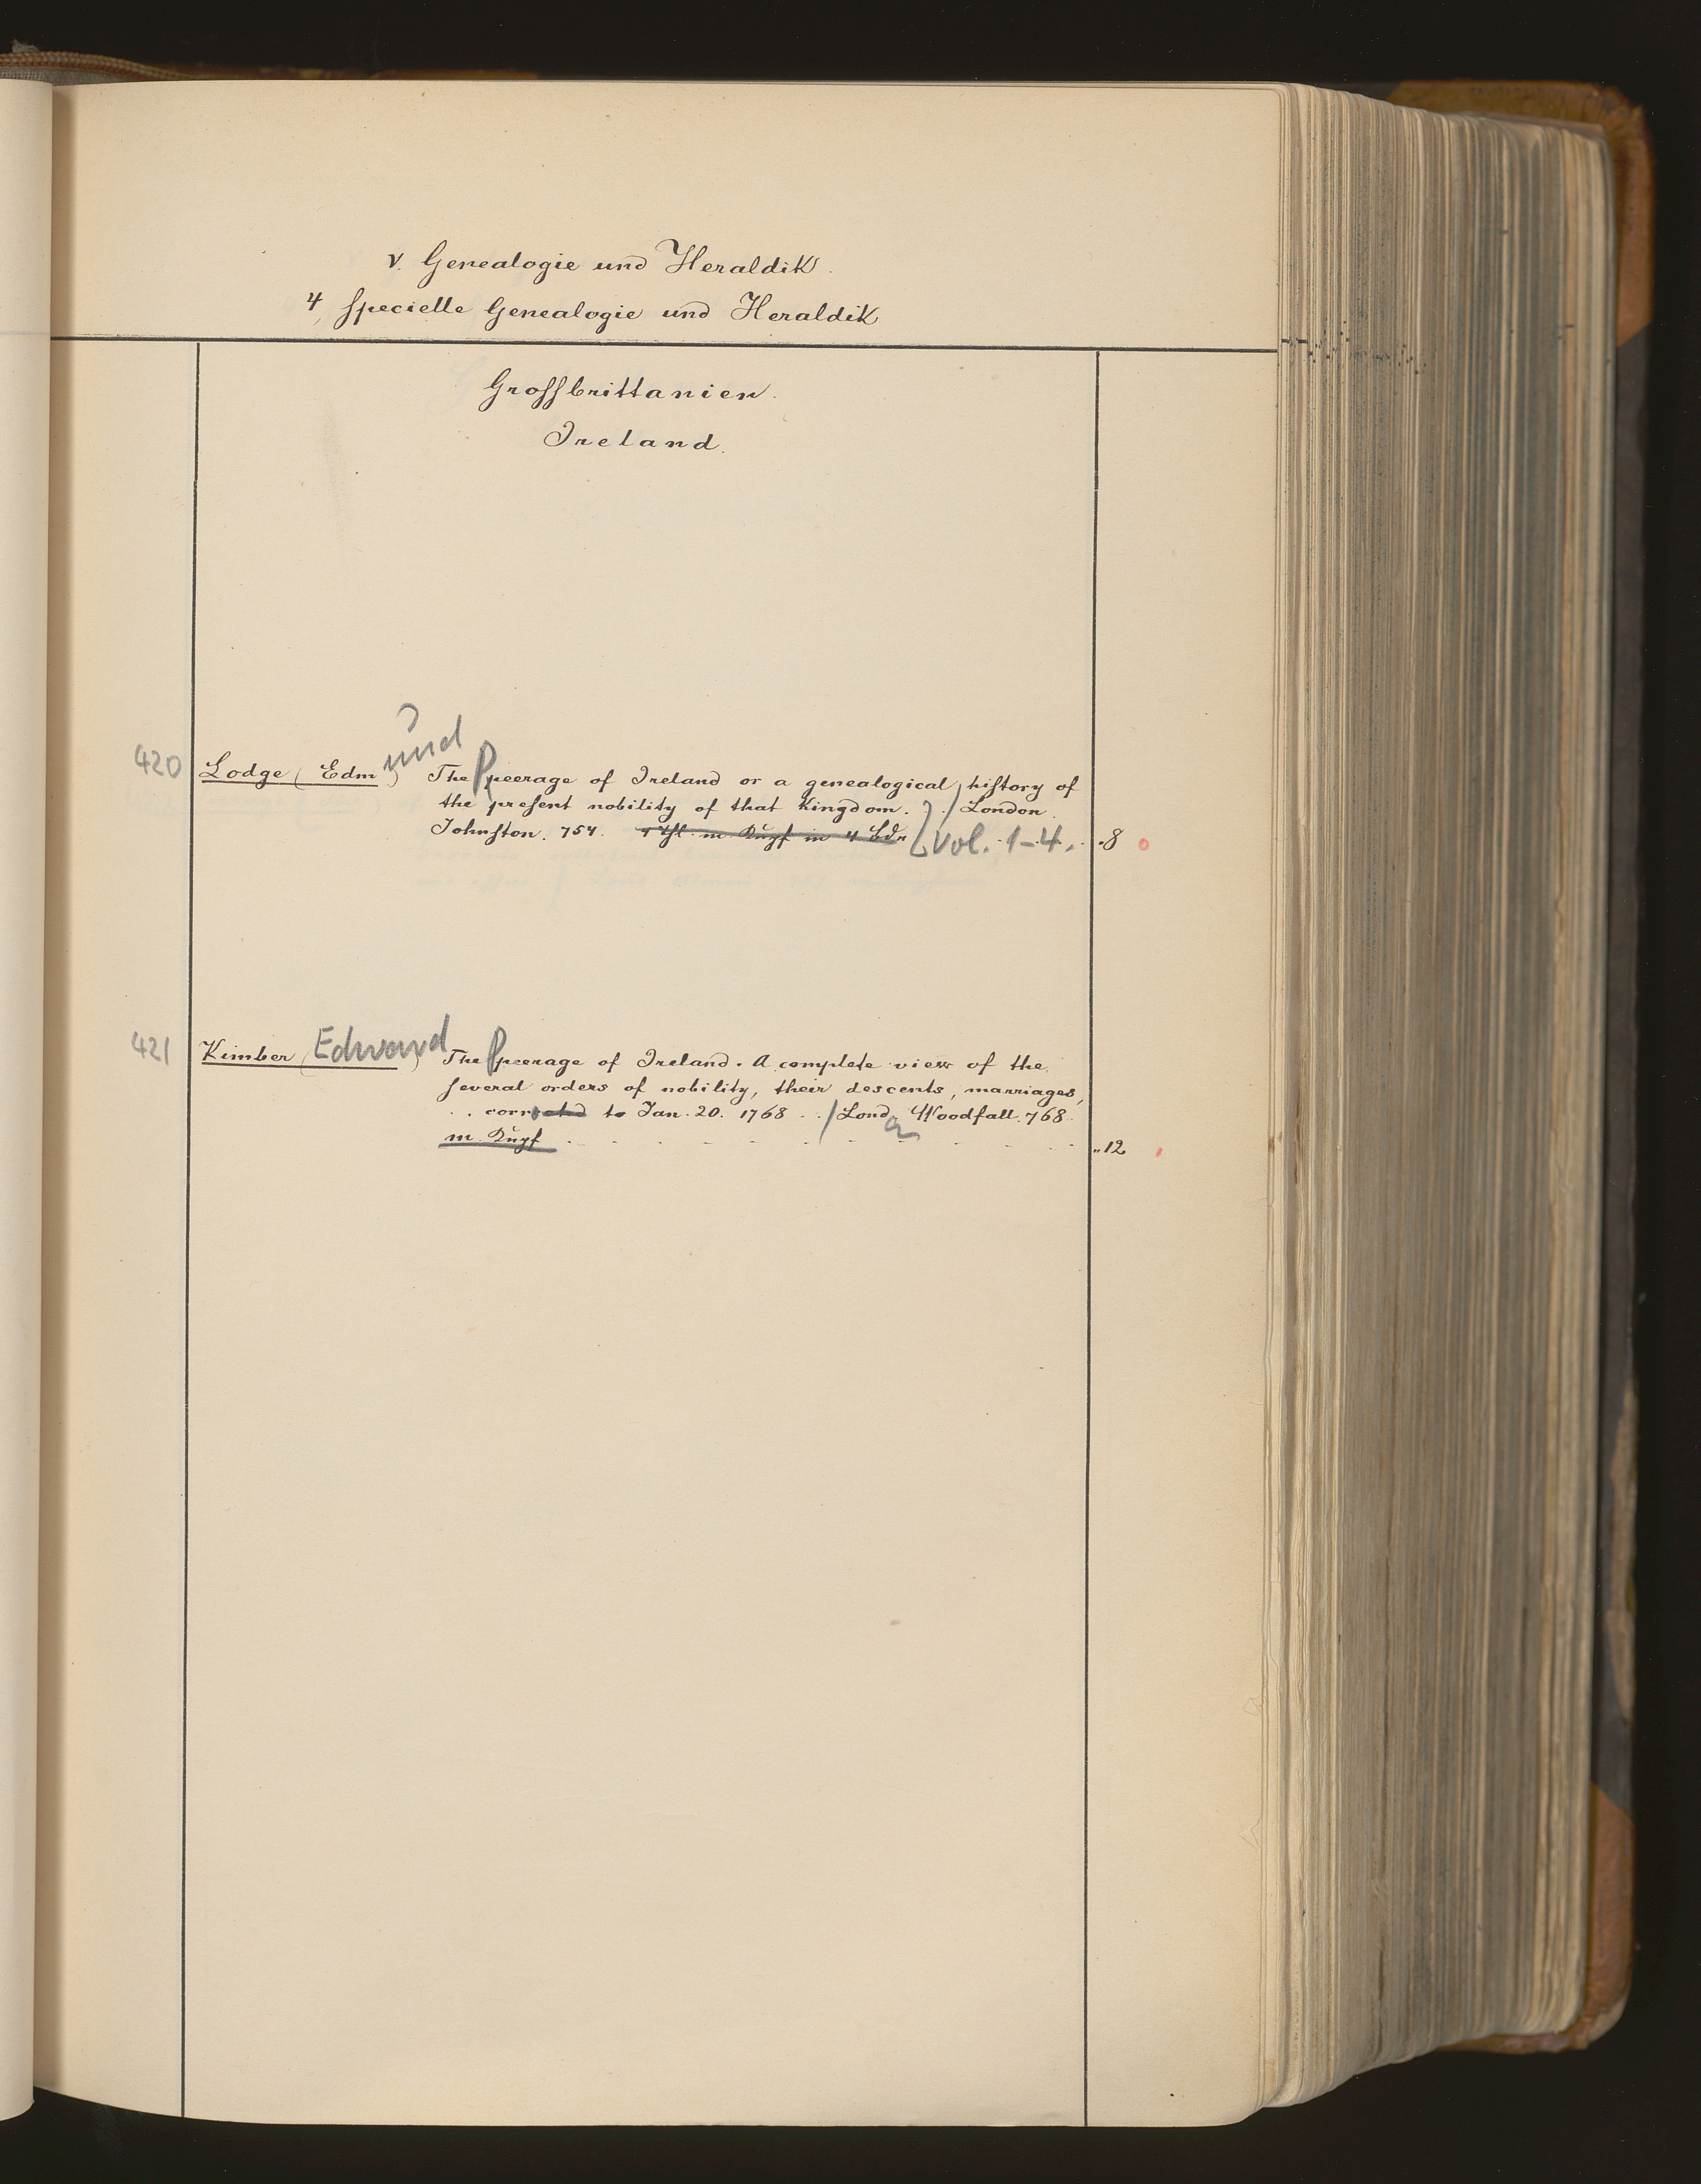 V. Genealogie und Heraldik.
4, Specielle Genealogie und Heraldik
Grossbrittanien.
Ireland.
420 Lodge (Edmund) The Peerage of Ireland or a genealogical history of
the present nobility of that Kingdom. . / London.
Johnston. 754. 4 Thl. m. Kupf in 4 Bdn [Vol. 1-4. .8
421 Kimber (Edward) The Peerage of Ireland. A complete view of the
several orders of nobility, their descents, marriages,
. . corrected to Jan. 20. 1768 . . / Lond. Woodfall. 768.
m. Kupf . . . . . . . . . . . „12